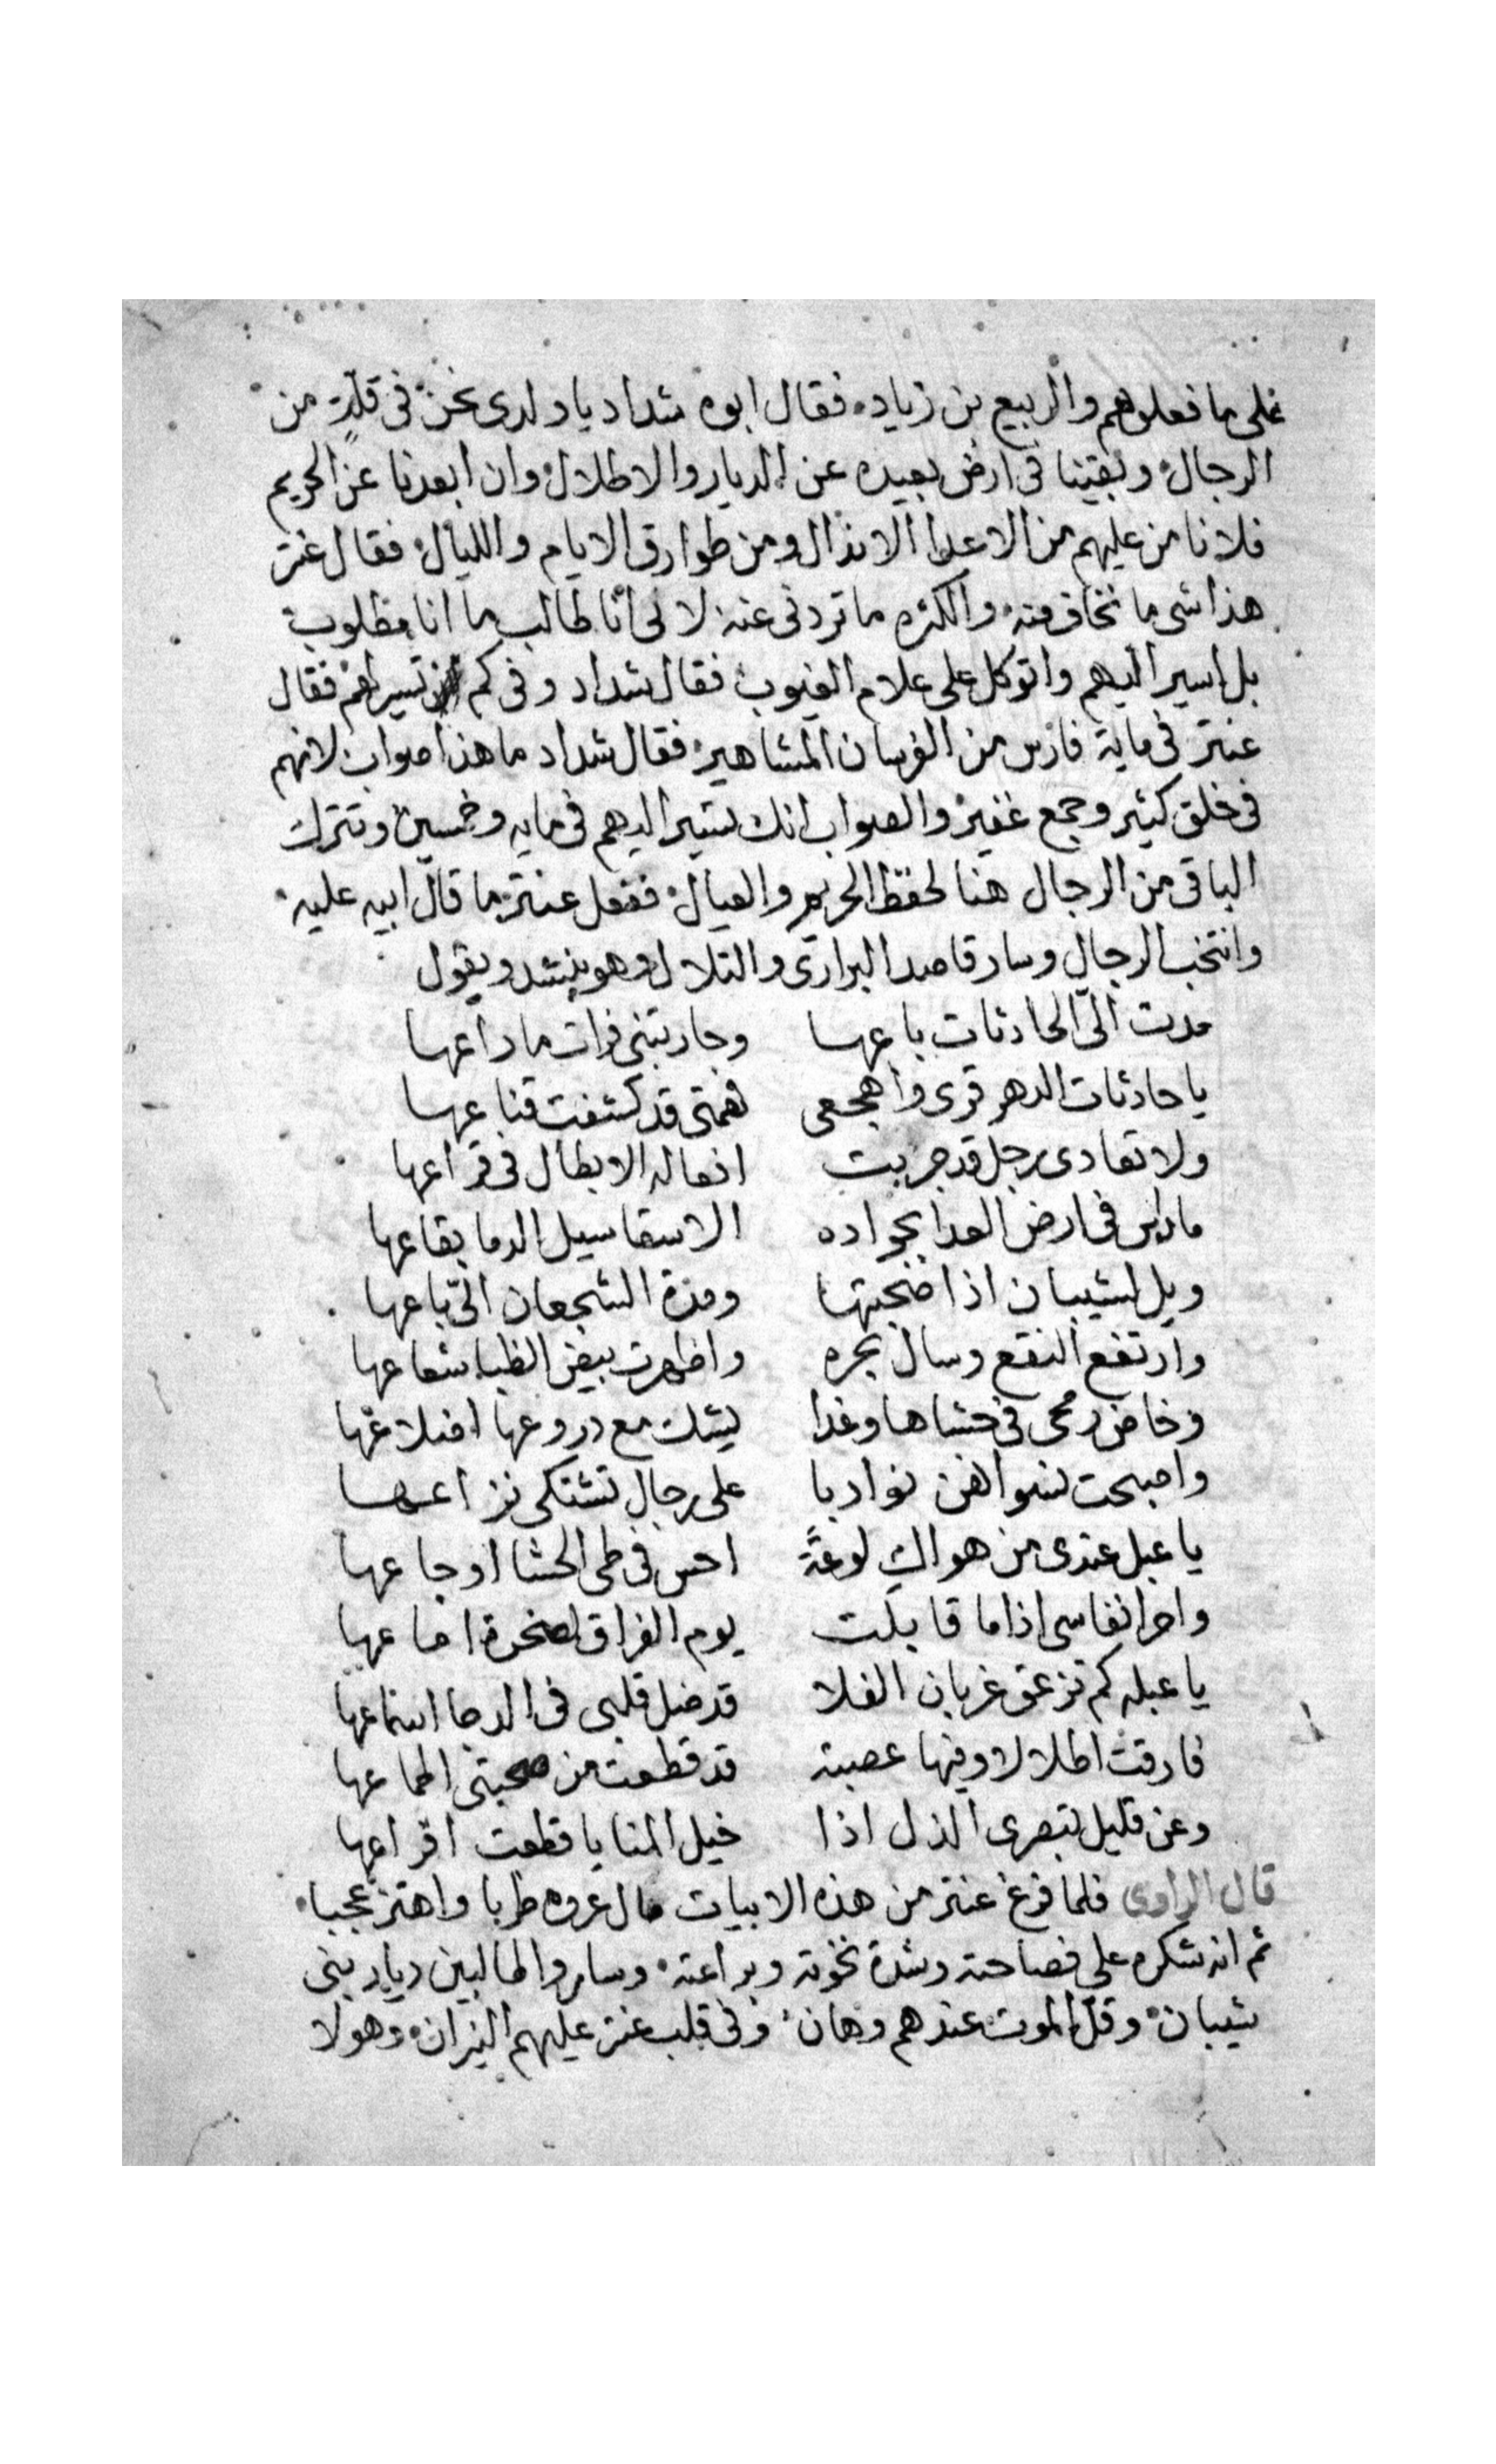 على ما فعلوهم والربيع بن زياد فقال ابوه شداد يا ولدى نحن فى قلة من
الرجال وبقينا فى ارض بعيده عن الديار والاطلال وان ابعدنا عن الحريم
فلا نامن عليهم من الاعدا الانذال ومن طوارق الايام والليال فقال عنتر
هذا شى ما نخاف منه والكثره ما تردنى عنه لانى انا طالب ما انا مطلوب
بل اسير اليهم واتوكل على علام الغيوب فقال شداد وفى كم تسير لهم فقال
عنتر فى ماية فارس من الفرسان المشاهير فقال شداد ما هذا صواب لانهم
فى خلق كثير وجمع غفير والصواب انك تسير اليهم فى مايه وخمسين وتترك
الباقى من الرجال هنا لحفظ الحريم والعيال ففعل عنتر ما قال ابيه عليه
وانتخب الرجال وسار قاصد البرارى والتلال وهو ينشد ويقول
مدت الىّ الحادثات باعها وحاربتنى فرات ما راعها
يا حادثات الدهر قرى واهجعى فهمتى قد كشفت قناعها
ولا تعادى رجل قد جربت افعاله الابطال فى قراعها
ما داس فى ارض العدا بجواده الا سقا سيل الدما بقاعها
ويل لشيبان اذا صبحتها ومدة الشجعان الىّ باعها
وارتفع النقع وسال بحره واظهرت بيض الظبا شعاعها
وخاض رمحى فى حشاها وغدا يشك مع دروعها اضلاعها
واصبحت نسوانهن نوادبا على رجال تشتكى نزاعها
يا عبل عندى من هواك لوعةً احس فى طى الحشا اوجاعها
واحر انفاسى اذا ما قابلت يوم الفراق لصخرة اماعها
يا عبله كم تزعق غربان الفلا قد ضل قلبى فى الدجا اسماعها
فارقت اطلالا وفيها عصبة قد قطعت من صحبتى اطماعها
وعن قليل تبصرى الذل اذا خيل المنايا قطعت اقراعها
قال الراوى فلما فرغ عنتر من هذه الابيات مال عروه طربا واهتز عجبا
ثم انه شكره على فصاحته وشدة نخوته وبراعته وساروا طالبين ديار بنى
شيبان وقل الموت عندهم وهان وفى قلب عنتر عليهم النيران وهولا